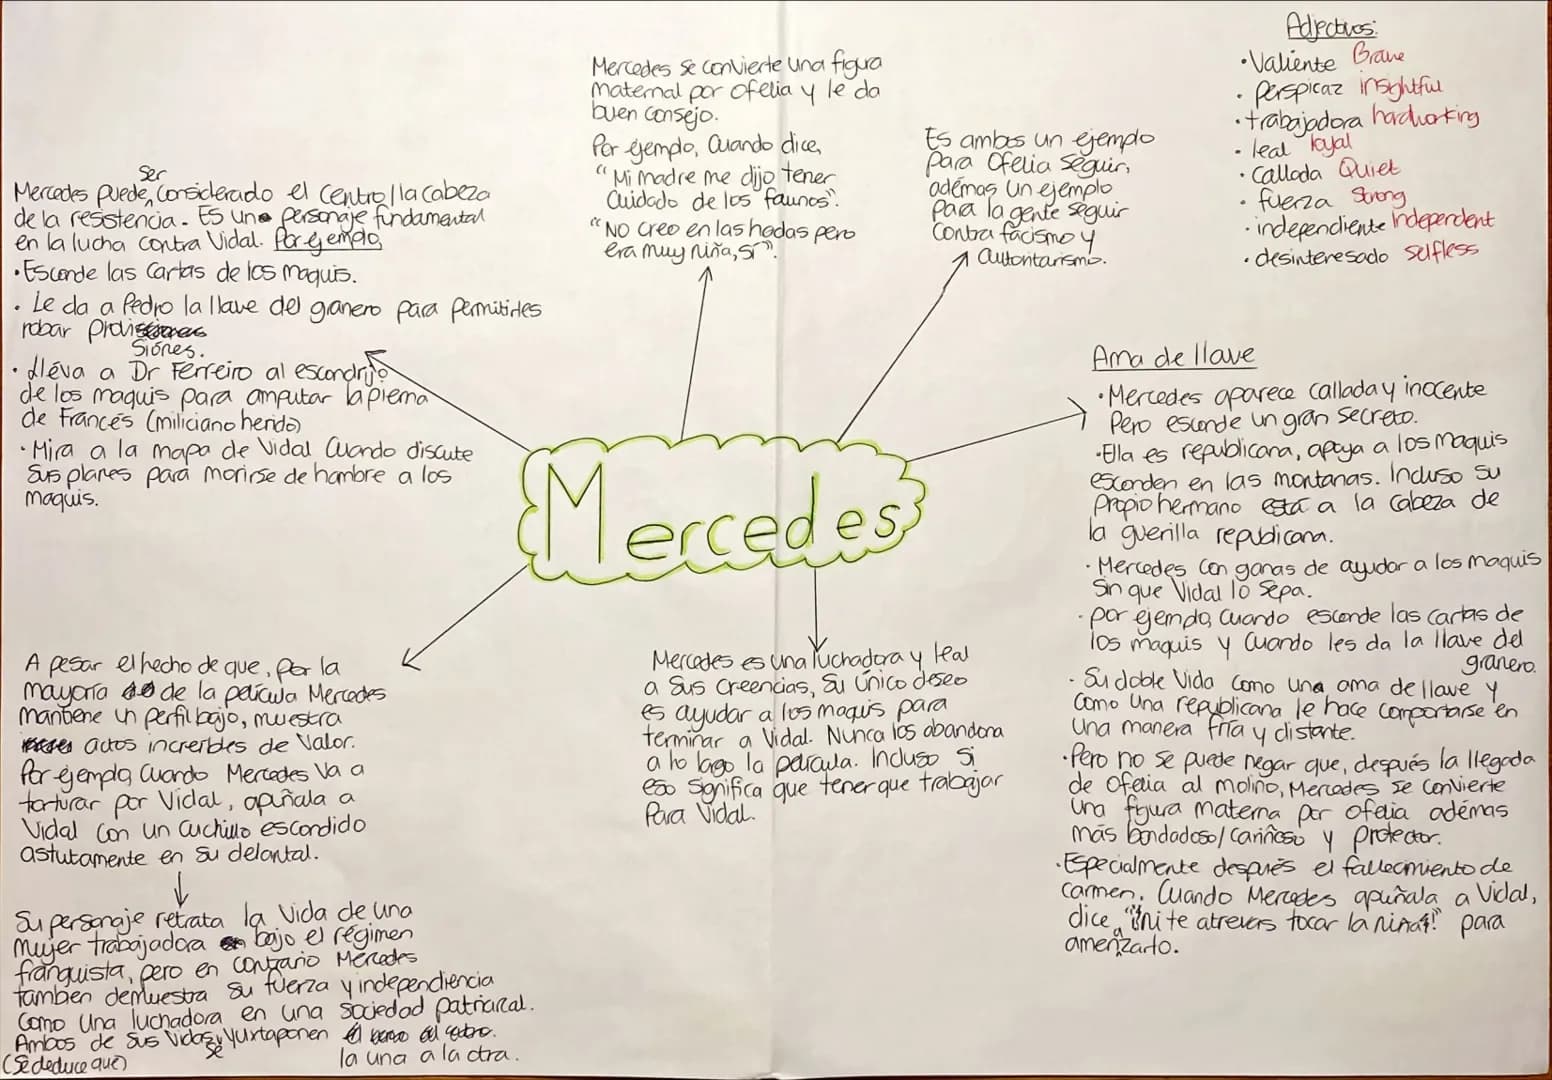 Mercedes
Mercedes puede ser considerado el centro/la cabeza
de la resistencia. Es una personaje fundamental
en la lucha contra Vidal. Por ejemplo,
• Esconde las cartas de los maquis.
• Le da a Pedro la llave del granero para permitirles
robar provisiones.
• Lléva a Dr Ferreiro al escondrijo
de los maquis para amputar la pierna
de Francés (miliciano herido)
• Mira a la mapa de Vidal cuando discute
sus planes para morirse de hambre a los
maquis.
Mercedes se convierte una figura
maternal por ofelia y le da
buen consejo.
Por ejemplo, cuando dice,
"Mi madre me dijo tener
cuidado de los faunos".
"No creo en las hadas pero
era muy niña, sí".
Es ambos un ejemplo
para Ofelia seguir,
adémas un ejemplo
para la gente seguir
contra facismo y
autontarismo.
Adjectivos:
• Valiente Brave
• perspicaz insightful
• trabajadora hardworking
• leal loyal
• callada Quiet
• fuerza Strong
• independiente Independent
• desinteresado selfless
Ama de llave
• Mercedes aparece callada y inocente
pero esconde un gran secreto.
• Ella es republicana, apoya a los maquis
esconden en las montanas. Incluso su
propio hermano está a la cabeza de
la guerilla republicana.
• Mercedes con ganas de ayudar a los maquis
sin que Vidal lo sepa.
• por ejemplo, cuando esconde las cartas de
los maquis y cuando les da la llave del
granero.
• Su doble vida como una ama de llave y
como una republicana le hace comportarse en
una manera fría y distante.
• Pero no se puede negar que, después la llegada
de Ofelia al molino, Mercedes se convierte
una figura materna por ofelia adémas
más bondadoso/cariñoso y protector.
• Especialmente después el fallecimiento de
carmen. Cuando Mercedes apuñala a Vidal,
dice, "¡ni te atrevas tocar la niña!" para
amenzarlo.
Mercedes es una luchadora y leal
a sus creencias, su único deseo
es ayudar a los maquis para
terminar a Vidal. Nunca los abandona
a lo lago la película. Incluso si
eso significa que tener que trabajar
para Vidal.
A pesar el hecho de que, por la
mayoría de la película Mercedes
mantiene un perfil bajo, muestra
actos increíbles de valor.
Por ejemplo, cuando Mercedes va a
torturar por Vidal, apuñala a
Vidal con un cuchillo escondido
astutamente en su delantal.
Su personaje retrata la vida de una
mujer trabajadora bajo el régimen
franquista, pero en contrario Mercedes
tambien demuestra su fuerza y independiencia
como una luchadora en una sociedad patriarcal.
Ambos de sus vidas se yuxtaponen
la una a la otra.
(se deduce que)